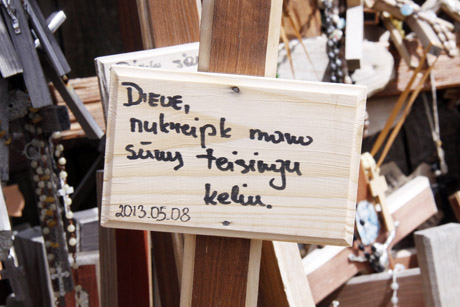 Dieve,
nukreipk mano
sūnų teisingu
keliu.
2013.05.08